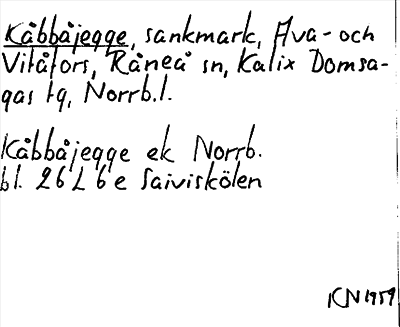 Kåbbåjegge, sankmark, Ava- och
Vitåfors, Råneå sn, Kalix Domsa-
gas tg, Norrb.l.
Kåbbåjegge ek Norrb.
bl. 26 L 6 e Saiviskölen
KN 1959